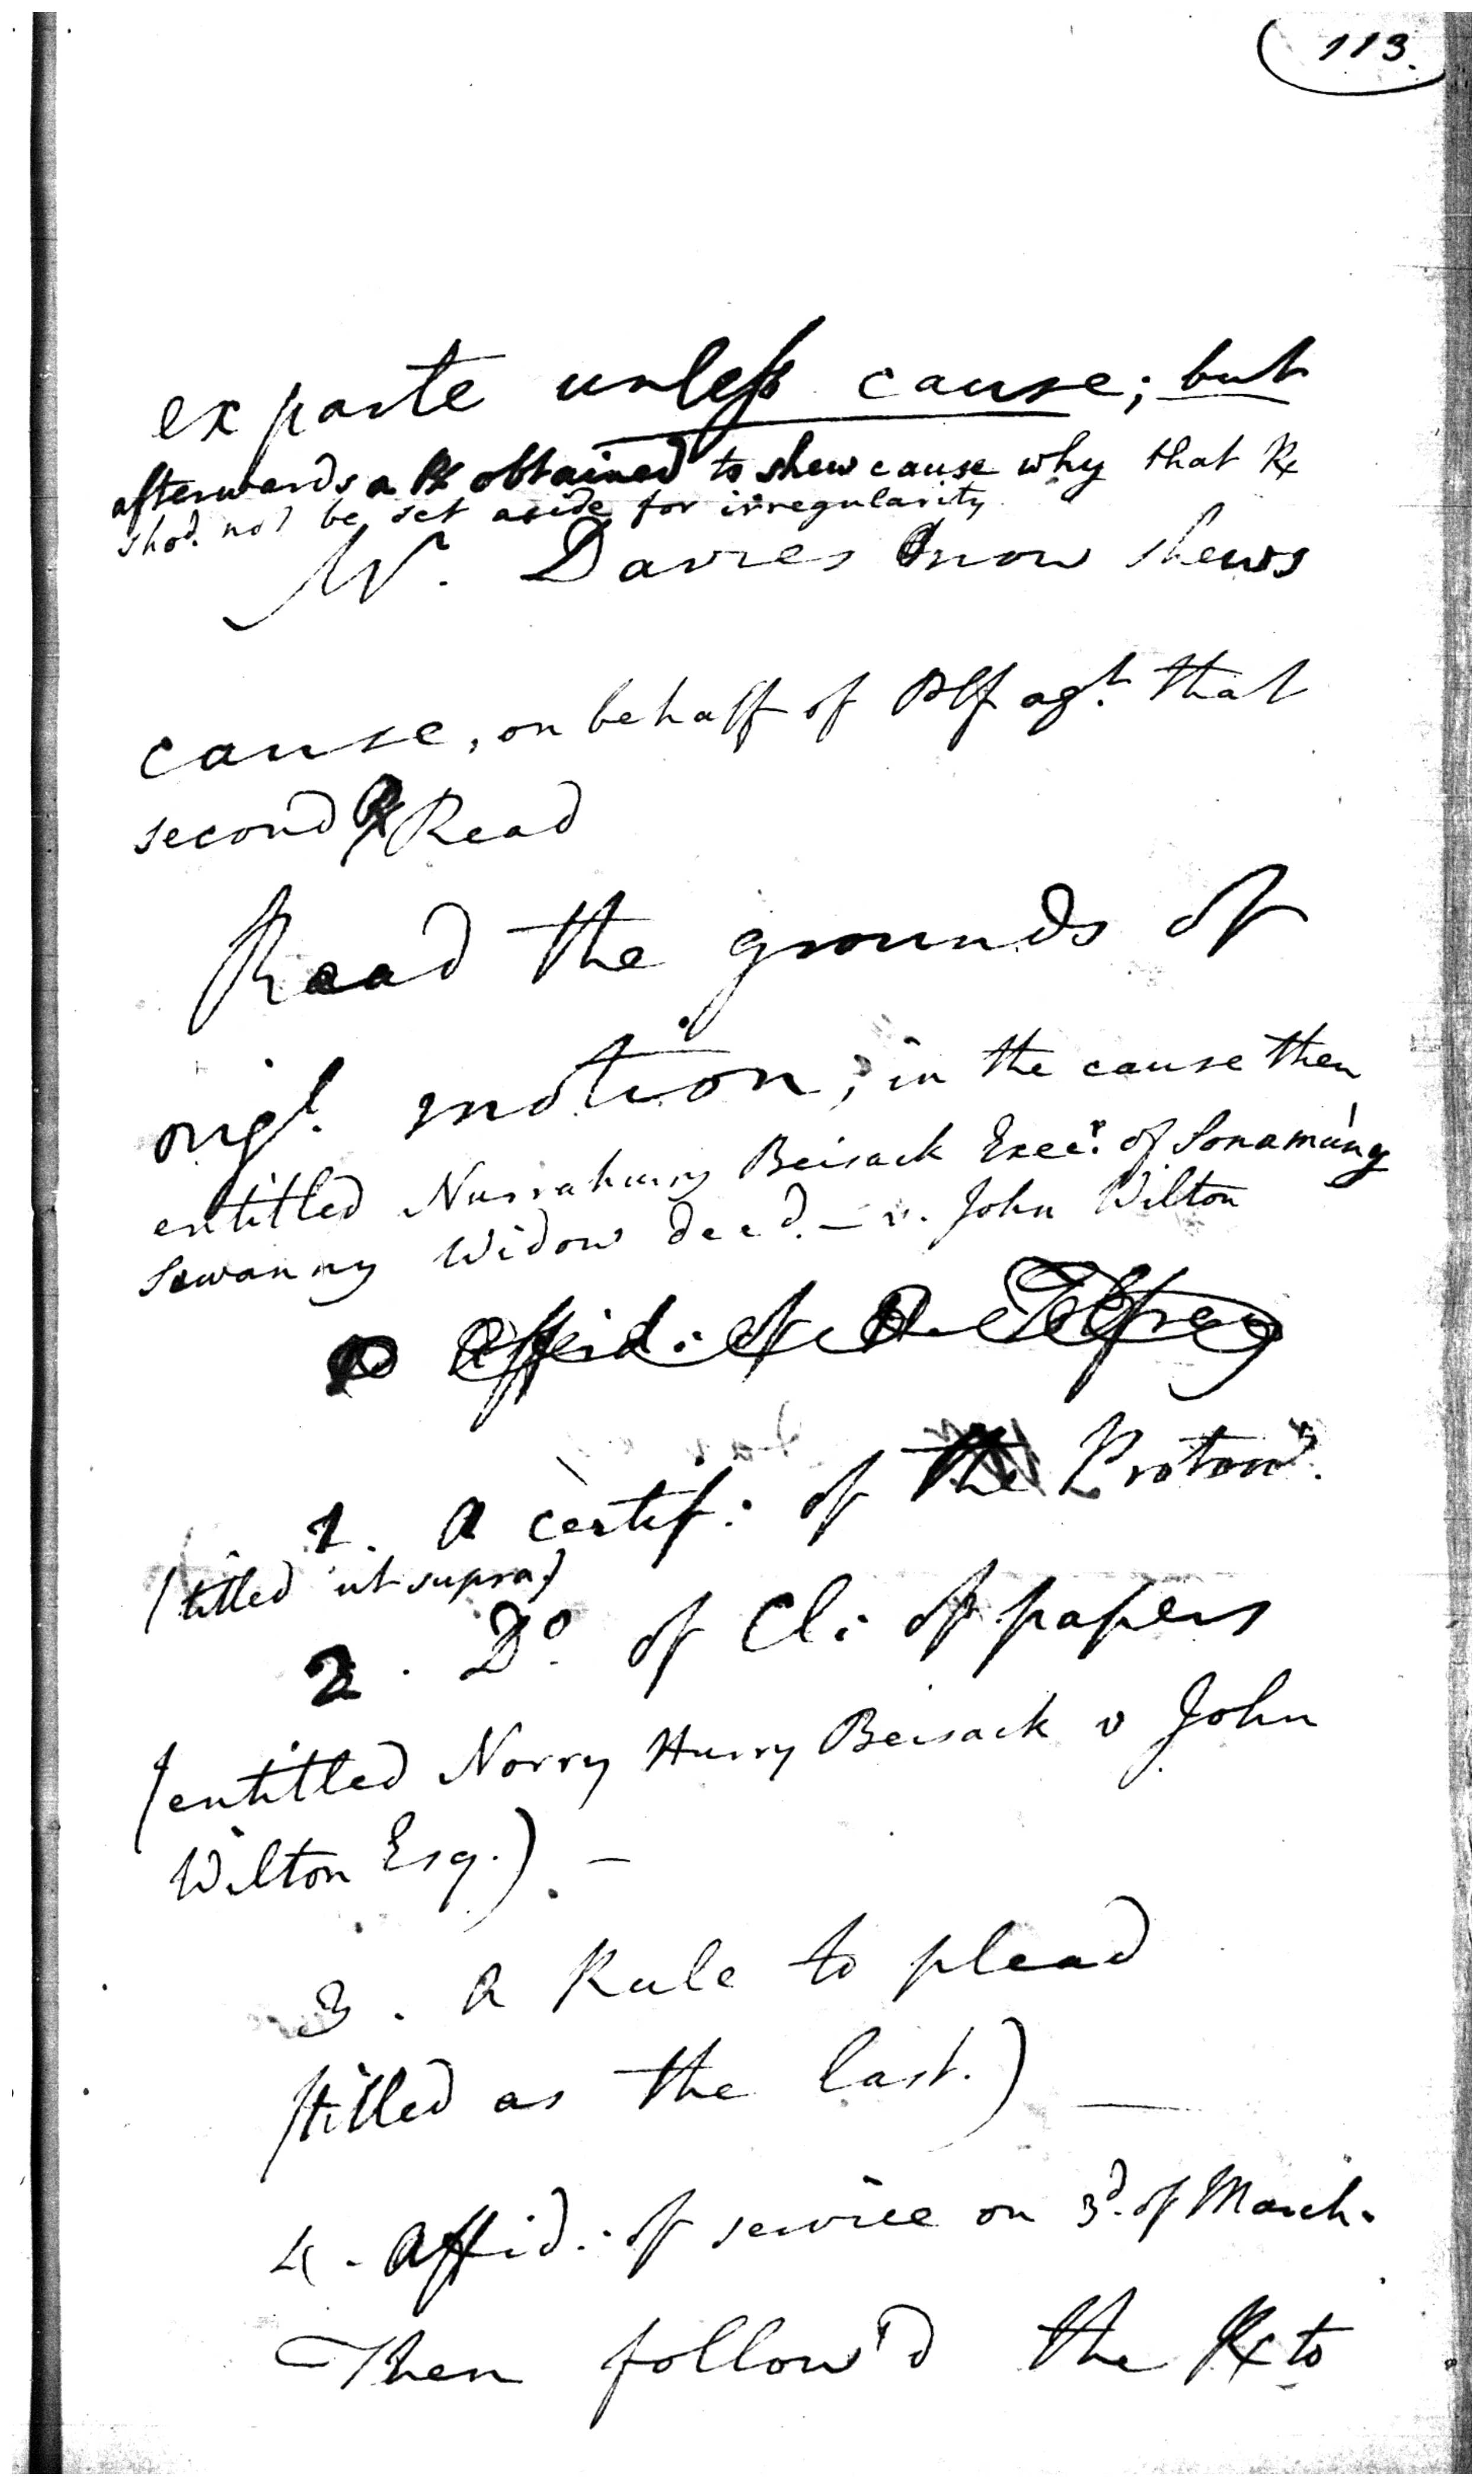 113.
ex parte unless cause; but
afterwards a Rx obtained to shew cause why that Rx
shod. not be set aside for irregularity
Mr. Davies now shews
cause, on behalf of Plf agt. that
second Rx Read
Read the grounds of
origl. motion, in the cause then
entitled Nurrahurry Beisack Execr. of Sonamuny
Sewanny Widow decd. – v. John Wilton
Affid: of
1. A certif: of the Protonry.
(titled ut supra)
2. Do. of Cl: of papers
(entitled Norry Hurry Beisack v John
Wilton Esq.) –
3. A Rule to plead
(titled as the last.) —
4. Affid: of service on 3d. of March.
Then follow'd the Rx to